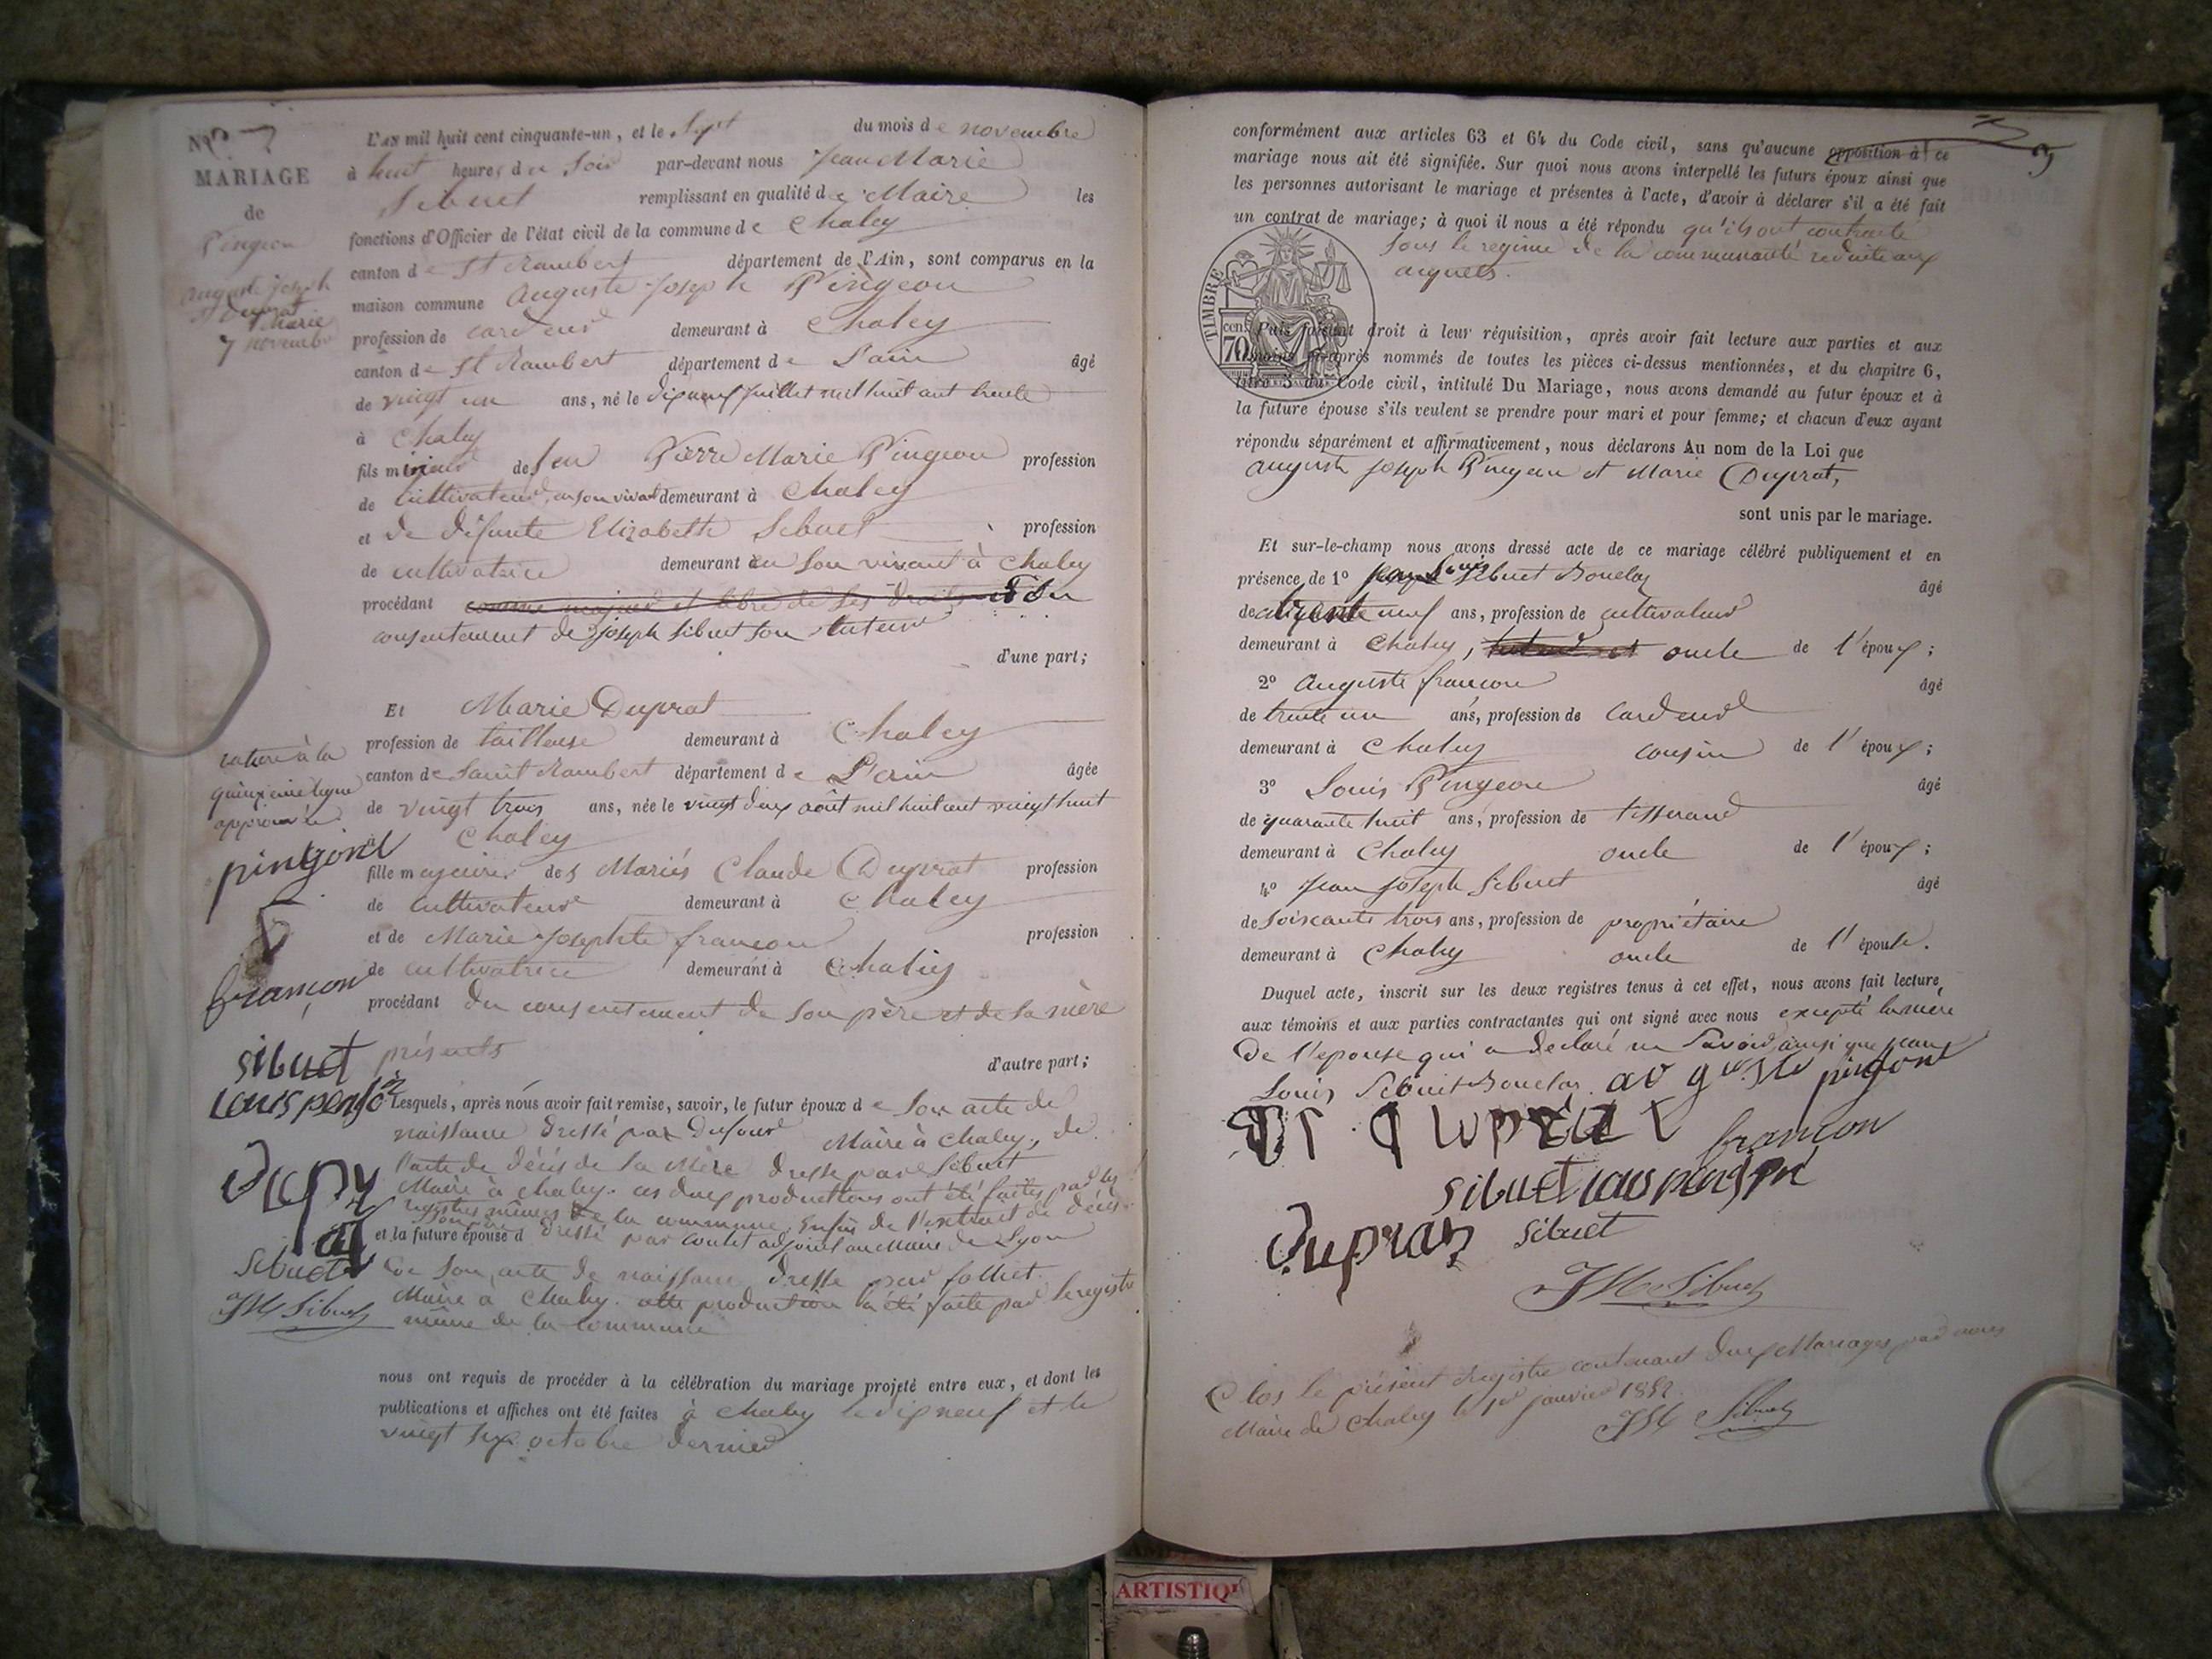 No 2
MARIAGE
de
Pingeon
Auguste joseph
Duprat
Marie
7 novembre
L'AN mil huit cent cinquante-un, et le Sept du mois de novembre
à huit heures du Soir par-devant nous Jean Marie
Sibuet remplissant en qualité de Maire les
fonctions d'Officier de l'état civil de la commune de Chaley
canton de St Rambert département de l'Ain, sont comparus en la
maison commune Auguste Joseph Pingeon
profession de cardeur demeurant à Chaley
canton de St Rambert département de L'ain âgé
de vingt un ans, né le dix neuf juillet mil huit cent trente
à Chaley
fils mineur de feu Pierre Marie Pingeon profession
de cultivateur, en son vivant demeurant à Chaley
et de défunte Elizabeth Sibuet profession
de cultivatrice demeurant en Son vivant à Chaley
procédant comme majeur et libre de ses droits et du
consentement de joseph Sibuet son tuteur
d'une part;
Et Marie Duprat
profession de tailleuse demeurant à Chaley
canton de Saint Rambert département de L'ain âgée
de vingt trois ans, née le vingt deux août mil huit cent vingt huit
à Chaley
fille majeure des Mariés Claude Duprat profession
de cultivateur demeurant à Chaley
et de Marie Josephte françon profession
de cultivatrice demeurant à Chaley
procédant du consentement de Son père et de Sa mère
présents
d'autre part;
rature à la
quinzième ligne
approuvée
pingond
francon
Sibuet
Louis
Dupr
at
Sibuet
JM Sibuet
Lesquels, après nous avoir fait remise, savoir, le futur époux de Son acte de
naissance dressé par Dufour Maire à Chaley, de
l'acte de décès de Sa Mère dressé par Sibuet
Maire à Chaley. ces deux productions ont été faites par les
registres mêmes de la commune. Enfin de l'extrait de décès
de son père dressé par coutet adjoint au Maire de Lyon
et la future épouse d
de Son acte de naissance dressé par folliet
Maire à Chaley. cette production a été faite par le registre
même de la commune
nous ont requis de procéder à la célébration du mariage projeté entre eux, et dont les
publications et affiches ont été faites à Chaley le dix neuf et le
vingt six octobre dernier
conformément aux articles 63 et 64 du Code civil, sans qu'aucune opposition à ce
mariage nous ait été signifiée. Sur quoi nous avons interpellé les futurs époux ainsi que
les personnes autorisant le mariage et présentes à l'acte, d'avoir à déclarer s'il a été fait
un contrat de mariage; à quoi il nous a été répondu qu'ils ont contracté
Sous le regime de la communauté reduite aux
acquets.
TIMBRE
70 cent
Puis faisant droit à leur réquisition, après avoir fait lecture aux parties et aux
témoins ci-après nommés de toutes les pièces ci-dessus mentionnées, et du chapitre 6,
titre 5 du Code civil, intitulé Du Mariage, nous avons demandé au futur époux et à
la future épouse s'ils veulent se prendre pour mari et pour femme; et chacun d'eux ayant
répondu séparément et affirmativement, nous déclarons Au nom de la Loi que
Auguste Joseph Pingeon et Marie Duprat,
sont unis par le mariage.
Et sur-le-champ nous avons dressé acte de ce mariage célébré publiquement et en
présence de 1o Jean Louis Sibuet Bouclar âgé
de neuf ans, profession de cultivateur
demeurant à Chaley, tuteur et oncle de l'époux;
2o Auguste francon âgé
de trente un ans, profession de cardeur
demeurant à Chaley cousin de l'époux;
3o Louis Pingeon âgé
de quarante huit ans, profession de tisserand
demeurant à Chaley oncle de l'époux;
4o Jean Joseph Sibuet âgé
de Soixante trois ans, profession de propriétaire
demeurant à Chaley oncle de l'épouse.
Duquel acte, inscrit sur les deux registres tenus à cet effet, nous avons fait lecture
aux témoins et aux parties contractantes qui ont signé avec nous excepté la mère
de l'epouse qui a declaré ne Savoir, ainsi que jean
Louis Sibuet Bouclar.
auguste pingont
duprat
francon
Sibuet
Duprat
Sibuet
JM Sibuet
Clos le présent Registre contenant deux Mariages, par nous
Maire de Chaley le 1er janvier 1852.
JM Sibuet
ARTISTIQ